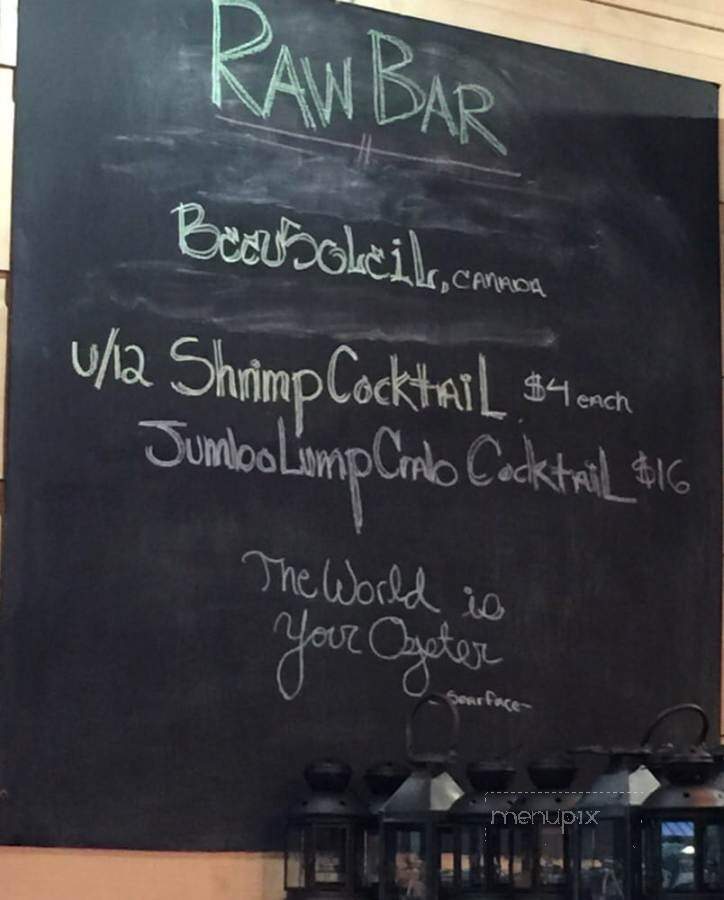 RAW BAR
BeauSoleil, CANADA
U/12 Shrimp Cocktail $4 each
Jumbo Lump Crab Cocktail $16
The World is
Your Oyster
-Scarface-
menupix